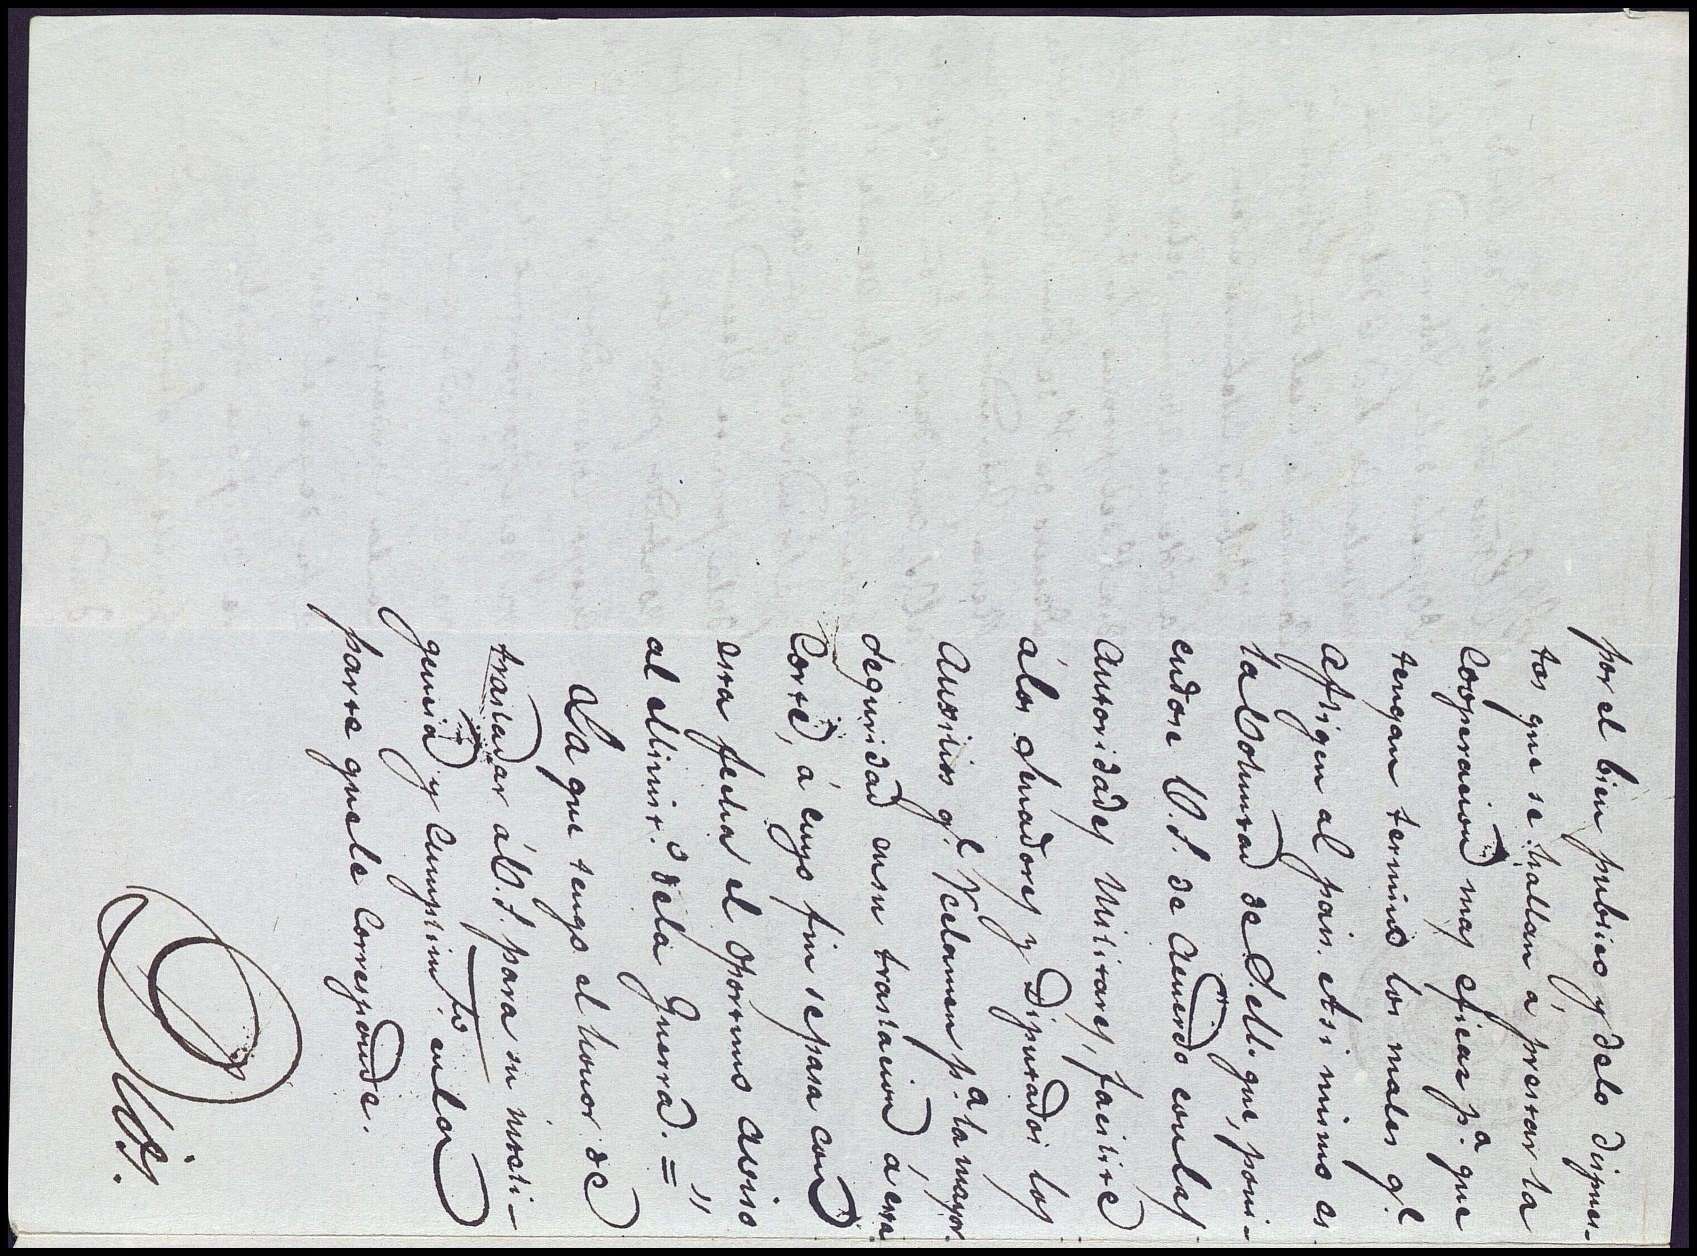 por el bien publico y delo dispues-
tos que se hallan á prestar la
cooperacion mas eficaz p.ª que
tengan termino los males q.e
afligen al pais. Asi mismo es
la Voluntad de S. M. que, poni-
endose V. S. de acuerdo con las
autoridades militares, facilite
á los Senadores y Diputados los
auxilios q.e reclamen p.ª la mayor
seguridad en su traslacion á esta
Corte, á cuyo fin se pasa con
esta fecha el oportuno aviso
al Minist.o de la Guerra. = "
La que tengo el honor de
trasladar á V. S. para su inteli-
gencia y cumplim.to en la
parte que le corresponde.